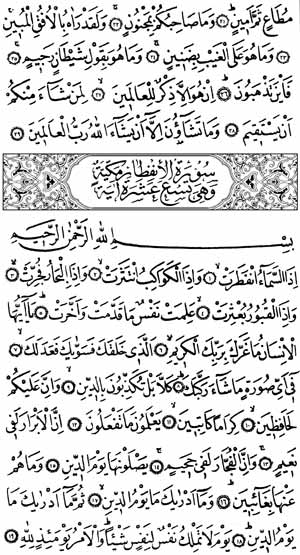 مُطَاعٍ ثَمَّ اَمِينٍ ﴿٢١﴾ وَمَا صَاحِبُكُمْ بِمَجْنُونٍ ﴿٢٢﴾ وَلَقَدْ رَاٰهُ بِالْاُفُقِ الْمُبِينِ
﴿٢٣﴾ وَمَا هُوَ عَلَى الْغَيْبِ بِضَنِينٍ ﴿٢٤﴾ وَمَا هُوَ بِقَوْلِ شَيْطَانٍ رَجِيمٍ ﴿٢٥﴾
فَاَيْنَ تَذْهَبُونَ ﴿٢٦﴾ اِنْ هُوَ اِلَّا ذِكْرٌ لِلْعَالَمِينَ ﴿٢٧﴾ لِمَنْ شَاءَ مِنْكُمْ
اَنْ يَسْتَقِيمَ ﴿٢٨﴾ وَمَا تَشَاؤُنَ اِلَّا اَنْ يَشَاءَ اللهُ رَبُّ الْعَالَمِينَ ﴿٢٩﴾
سُورَةُ الْاِنْفِطَارِ مَكِّيَّةٌ
وَهِيَ تِسْعَ عَشْرَةَ اٰيَةً
بِسْمِ اللهِ الرَّحْمٰنِ الرَّحِيمِ
اِذَا السَّمَاءُ انْفَطَرَتْ ﴿١﴾ وَاِذَا الْكَوَاكِبُ انْتَثَرَتْ ﴿٢﴾ وَاِذَا الْبِحَارُ فُجِّرَتْ ﴿٣﴾
وَاِذَا الْقُبُورُ بُعْثِرَتْ ﴿٤﴾ عَلِمَتْ نَفْسٌ مَا قَدَّمَتْ وَاَخَّرَتْ ﴿٥﴾ يَا اَيُّهَا
الْاِنْسَانُ مَا غَرَّكَ بِرَبِّكَ الْكَرِيمِ ﴿٦﴾ اَلَّذِي خَلَقَكَ فَسَوّٰيكَ فَعَدَلَكَ ﴿٧﴾
فِي اَيِّ صُورَةٍ مَا شَاءَ رَكَّبَكَ ﴿٨﴾ كَلَّا بَلْ تُكَذِّبُونَ بِالدِّينِ ﴿٩﴾ وَاِنَّ عَلَيْكُمْ
لَحَافِظِينَ ﴿١٠﴾ كِرَامًا كَاتِبِينَ ﴿١١﴾ يَعْلَمُونَ مَا تَفْعَلُونَ ﴿١٢﴾ اِنَّ الْاَبْرَارَ لَفِي
نَعِيمٍ ﴿١٣﴾ وَاِنَّ الْفُجَّارَ لَفِي جَحِيمٍ ﴿١٤﴾ يَصْلَوْنَهَا يَوْمَ الدِّينِ ﴿١٥﴾ وَمَا هُمْ
عَنْهَا بِغَائِبِينَ ﴿١٦﴾ وَمَا اَدْرٰيكَ مَا يَوْمُ الدِّينِ ﴿١٧﴾ ثُمَّ مَا اَدْرٰيكَ مَا
يَوْمُ الدِّينِ ﴿١٨﴾ يَوْمَ لَا تَمْلِكُ نَفْسٌ لِنَفْسٍ شَيْئًا وَالْاَمْرُ يَوْمَئِذٍ لِلهِ ﴿١٩﴾